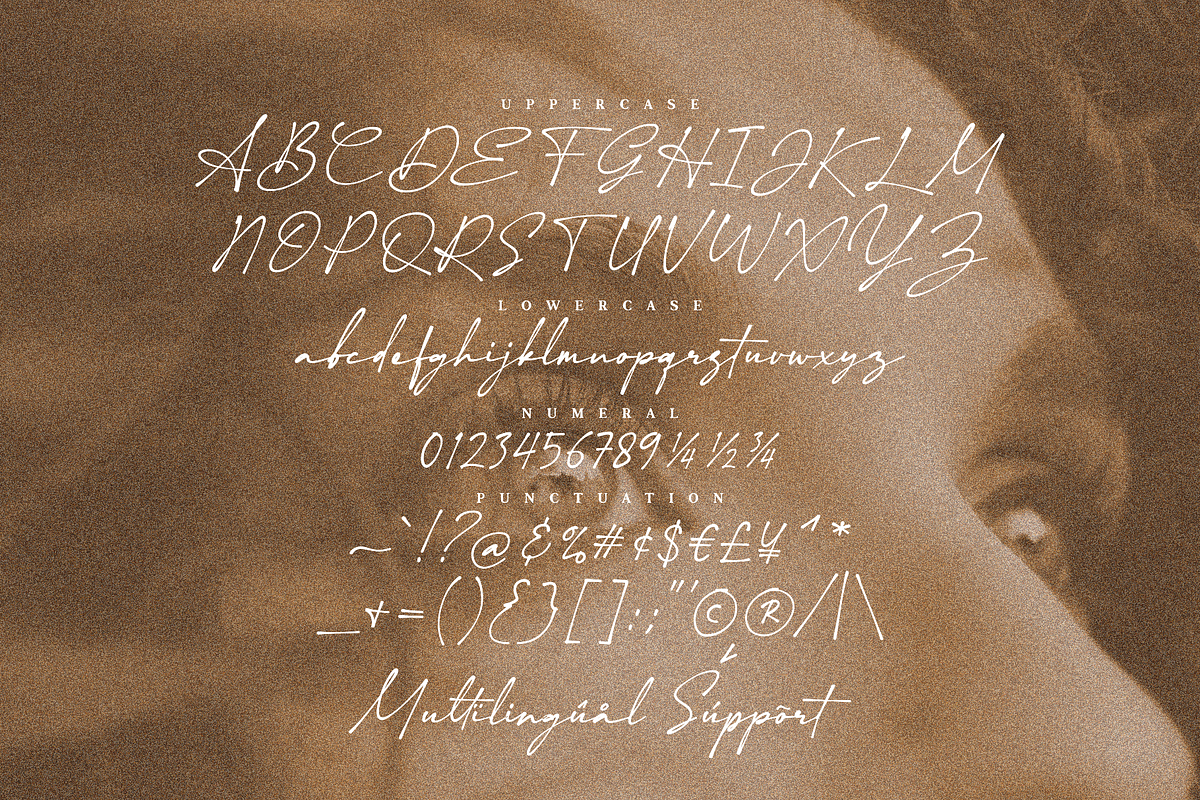 UPPERCASE
ABCDEFGHIJKLM
NOPQRSTUVWXYZ
LOWERCASE
abcdefghijklmnopqrstuvwxyz
NUMERAL
0123456789 ¼ ½ ¾
PUNCTUATION
~`!?@&%#¢$€£¥^*
_+=(){}[]:;"'©®/|\
Multilingûål Šúppõrt